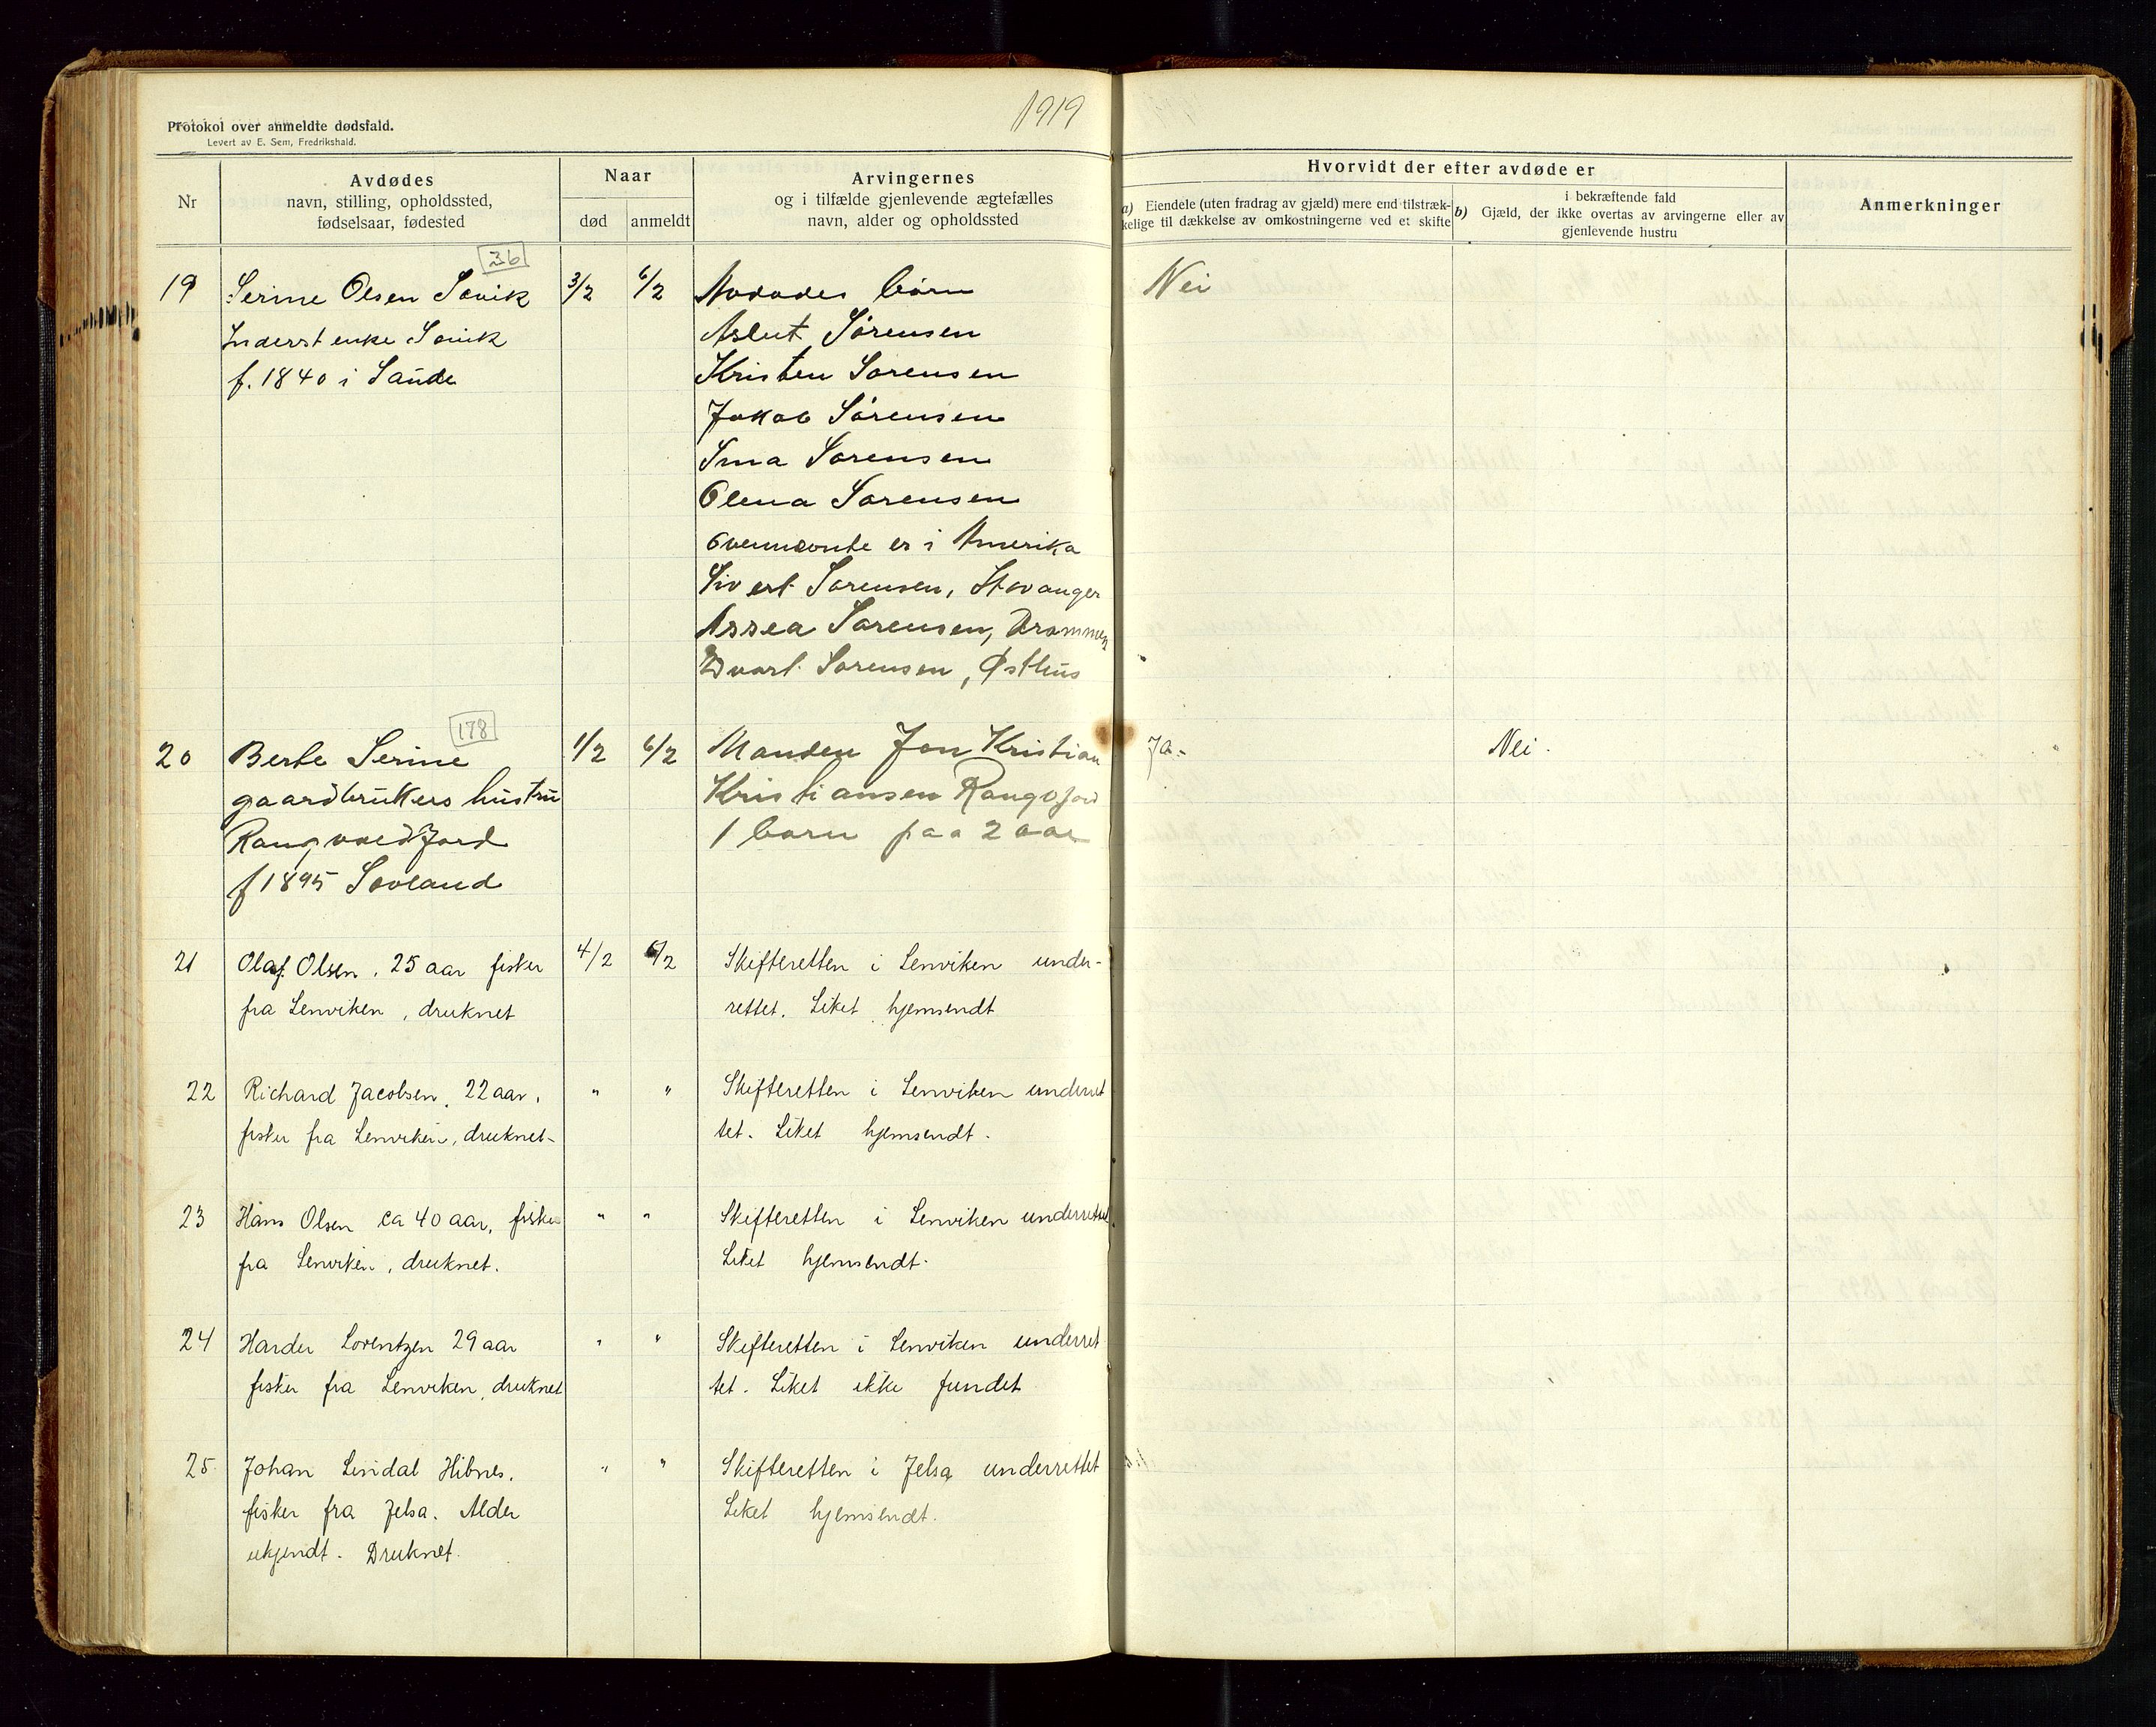 1919
Protokol over anmeldte dødsfald.
Levert av E. Sem, Fredrikshald.
Nr
Avdødes
navn, stilling, opholdssted,
fødselsaar, fødested
Naar
død
anmeldt
Arvingernes
og i tilfælde gjenlevende ægtefælles
navn, alder og opholdssted
Hvorvidt der efter avdøde er
a) Eiendele (uten fradrag av gjæld) mere end tilstræk-
kelige til dækkelse av omkostningerne ved et skifte
i bekræftende fald
b) Gjæld, der ikke overtas av arvingerne eller av
gjenlevende hustru
Anmerkninger
36
19 Serine Olsen Søvik 3/2 6/2 Avdødes børn Nei
Inderst enke Søvik Aslut Sørensen
f. 1840 i Saude Kristen Sørensen
Jakob Sørensen
Sina Sørensen
Olena Sørensen
ovennævnte er i Amerika
Sivert Sørensen, Stavanger
Assea Sørensen, Drammen
Edvart Sørensen, Østhus
178
20 Berte Serine 1/2 6/2 Manden Jon Kristian Ja. Nei.
gaardbrukers hustru Kristiansen
Rangvaldjord 1 barn paa 2 aar
f 1895 Søvland
21 Olaf Olsen, 25 aar fisker 4/2 6/2 Skifteretten i Lenviken under-
fra Lenviken, druknet rettet. Liket hjemsendt
22 Richard Jacobsen, 22 aar, " " Skifteretten i Lenviken underret
fisker fra Lenviken, druknet- tet. Liket hjemsendt.
23 Hans Olsen ca 40 aar, fisker " " Skifteretten i Lenviken underrettet.
fra Lenviken, druknet. Liket hjemsendt.
24 Harder Lorentzen 29 aar " " Skifteretten i Lenviken underret
fisker fra Lenviken, druknet tet. Liket ikke fundet
25 Johan Lindal Hibnes. " " Skifteretten i Jelsa underrettet
fisker fra Jelsa. Alder Liket hjemsendt.
ukjendt. Druknet.